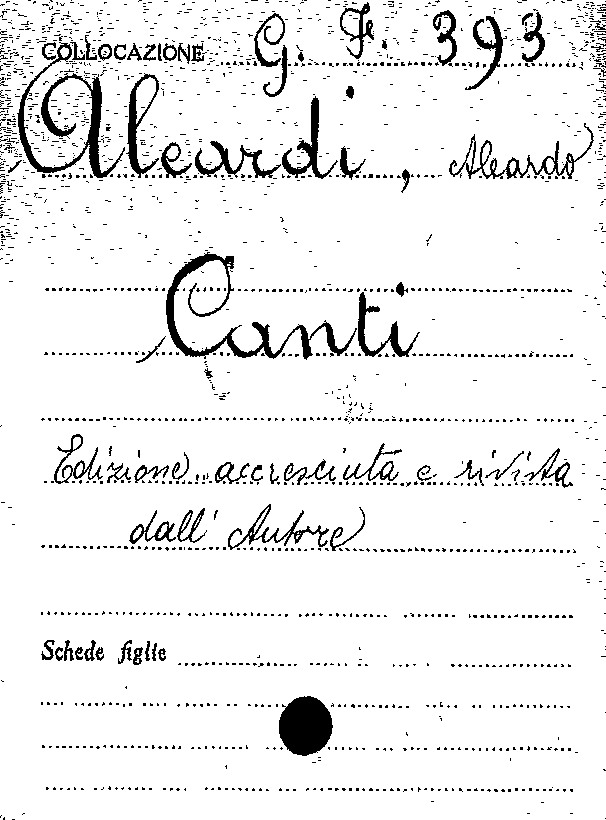 COLLOCAZIONE G. F. 393
Aleardi, Aleardo
Canti
Edizione accresciuta e rivista
dall' Autore
Schede figlie